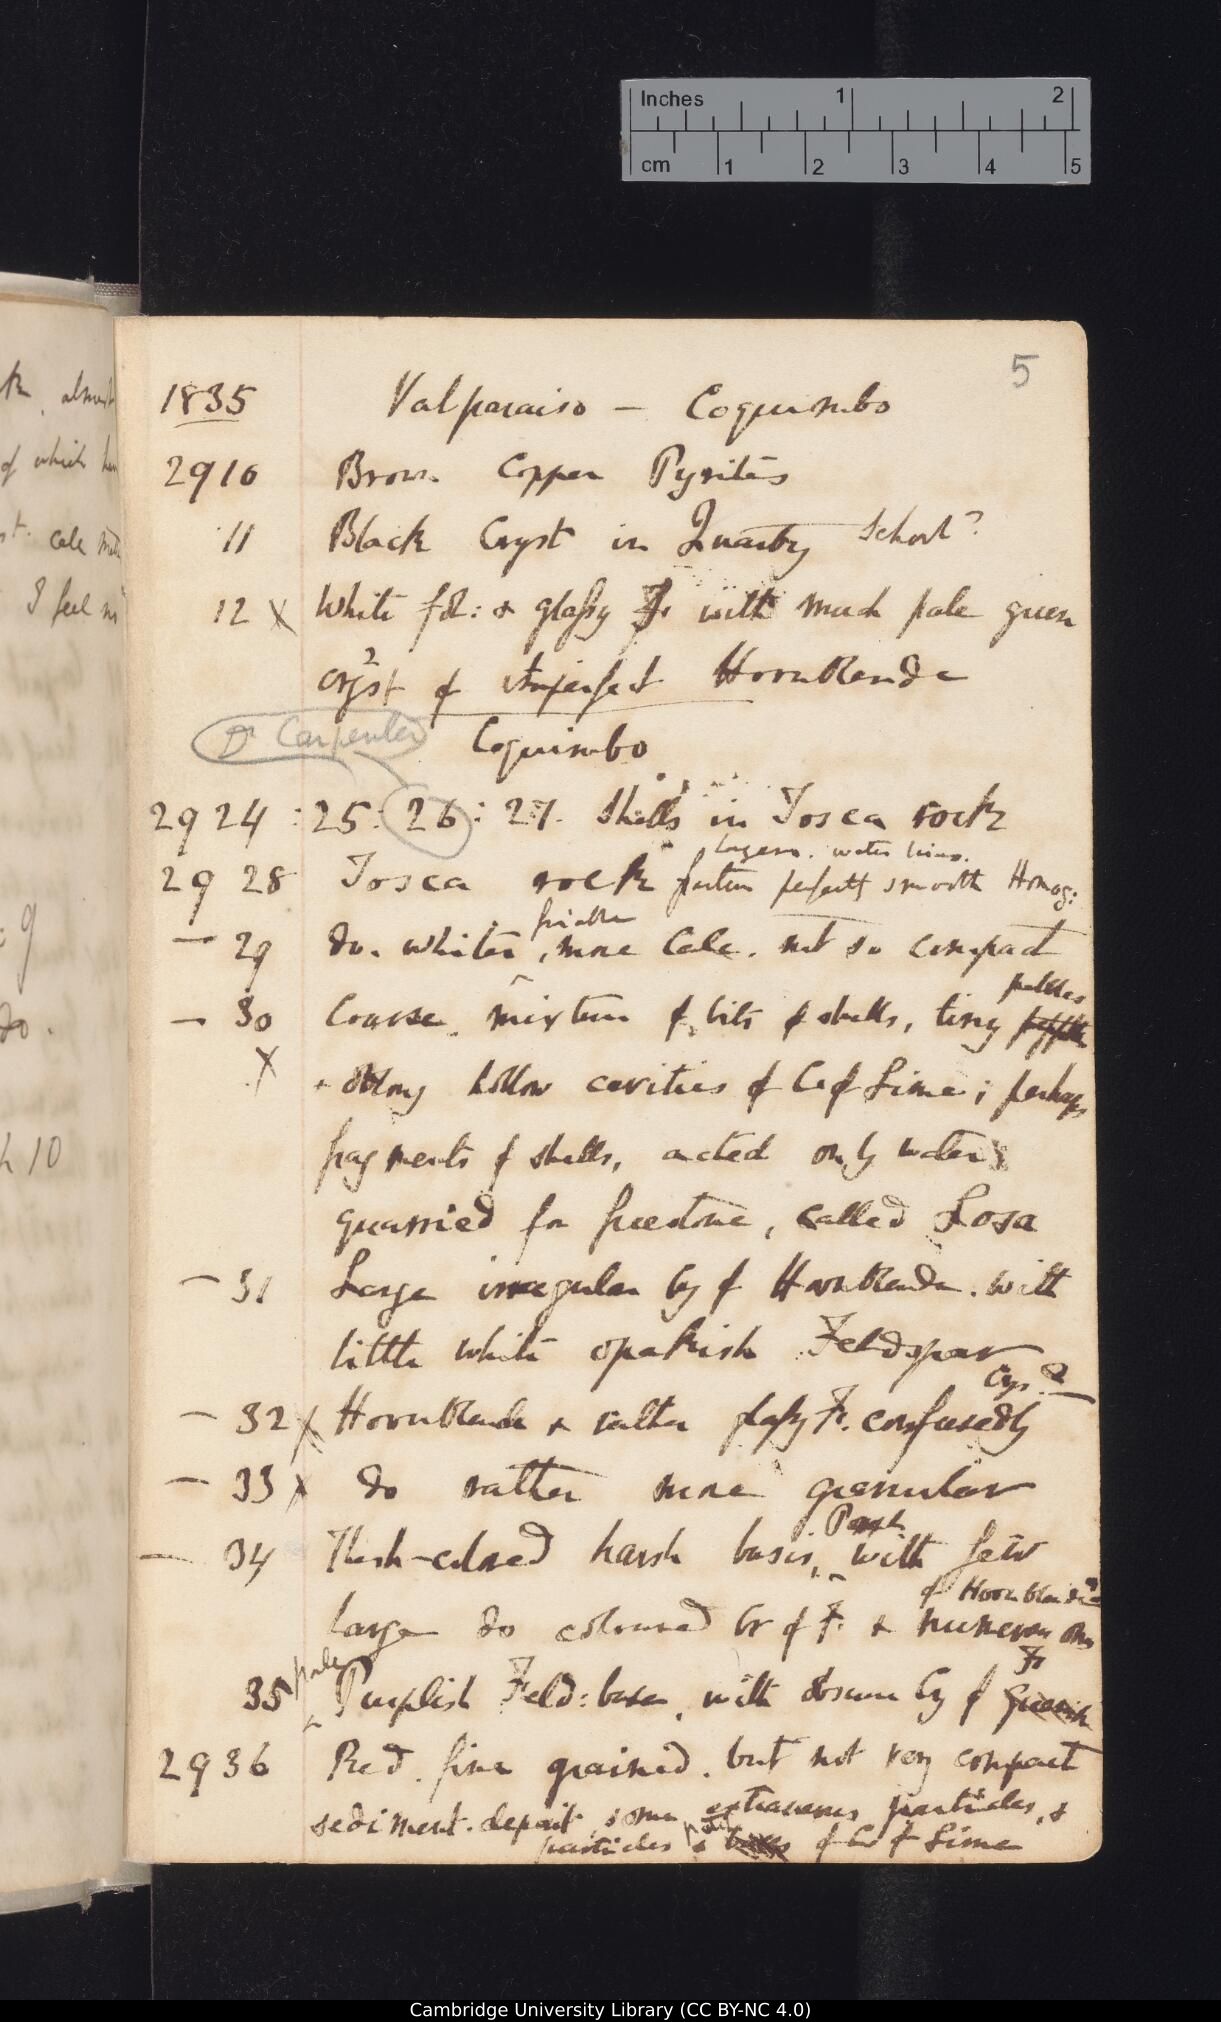 Inches 1 2
cm 1 2 3 4 5
5
1835 Valparaiso — Coquimbo
2910 Brown Copper Pyrites
11 Black Cryst in Quartz Schorl?
12 X White fd: & glassy Fr with much pale green
cryst of imperfect Hornblende
Dr Carpenter Coquimbo
2924 : 25 : 26 : 27. Shells in Tosca rock
layers. water lines.
2928 Tosca rock fracture perfectly smooth Homog:
friable
— 29 do. whiter, more Calc. not so compact
pebbles
— 30 Coarse mixture of bits of shells, tiny
X & oblong hollow cavities of C of Lime; perhaps
fragments of shells, acted on by water;
quarried for freestone, called Losa
— 31 Large irregular Cry of Hornblende. with
little white opakish Feldspar
Crys.
— 32 X Hornblende & rather glassy Fr. confusedly
— 33 X do rather more granular
— 34 Flesh-colored harsh basis, with few
of Hornblende?
large do coloured Cr of F. & numerous ones
pale Fr
35 Purplish Feld: base, with obscure Cry of greenish
2936 Red. fine grained. but not very compact
sediment. deposit, some extraneous particles, &
particles & of C of Lime
almost
of which
calc
I feel
9
do.
10
Cambridge University Library (CC BY-NC 4.0)